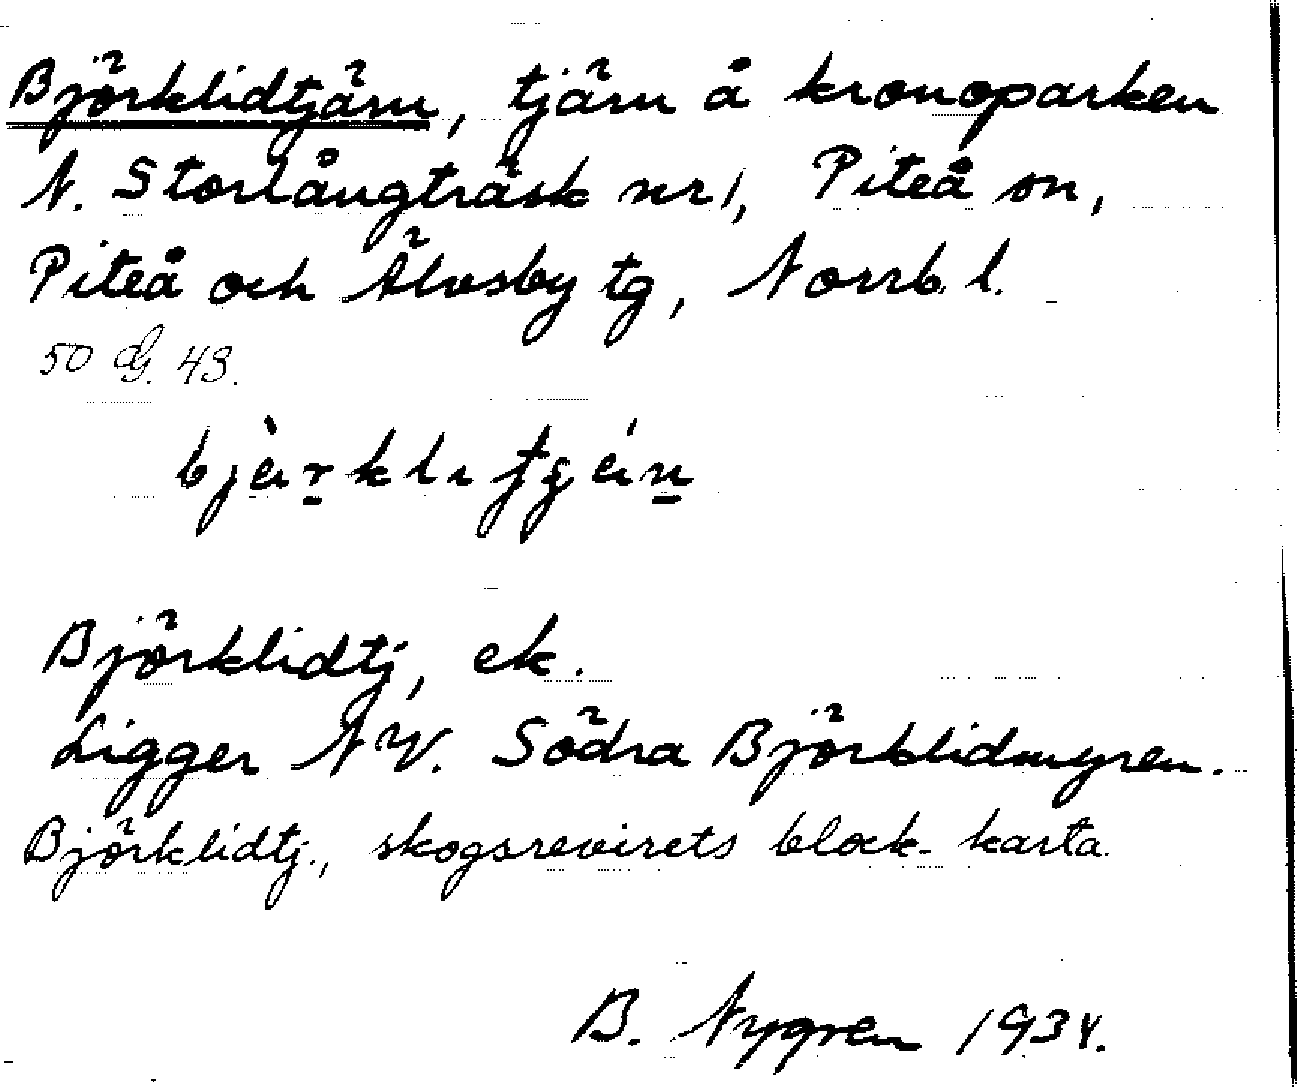 Björklidtjärn, tjärn å kronoparken
N. Storlångträsk nr 1, Piteå sn,
Piteå och Älvsby tg, Norrb. l.
50 43.
Björklidtj, ek.
Ligger NV. Södra Björklidmyren.
Björklidtj., skogsrevirets block-karta.
B. Nygren 1934.